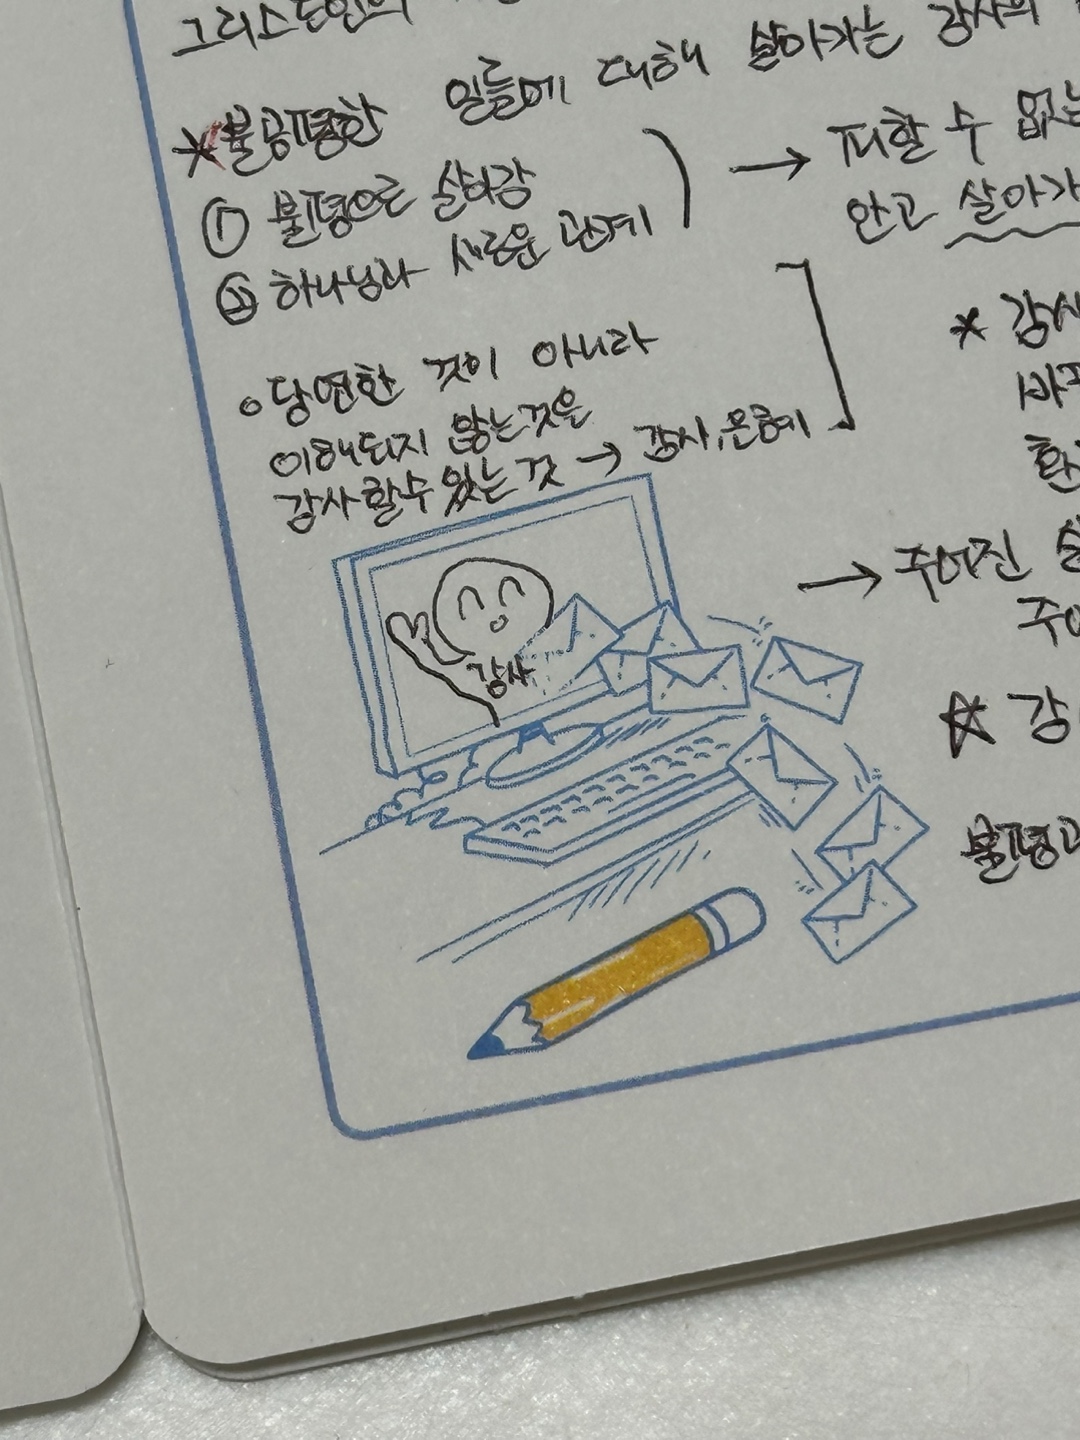 그리스도인의
*불공평한 일들에 대해 살아가는 감사의
① 불평으로 살아감
② 하나님과 새로운 관계
→ 피할 수 없는
안고 살아가
∘당연한 것이 아니라
이해되지 않는것은
감사할수 있는 것 → 감사, 은혜
* 감사
바꾸
환
감사
→ 주어진
주어
☆ 감
불평과